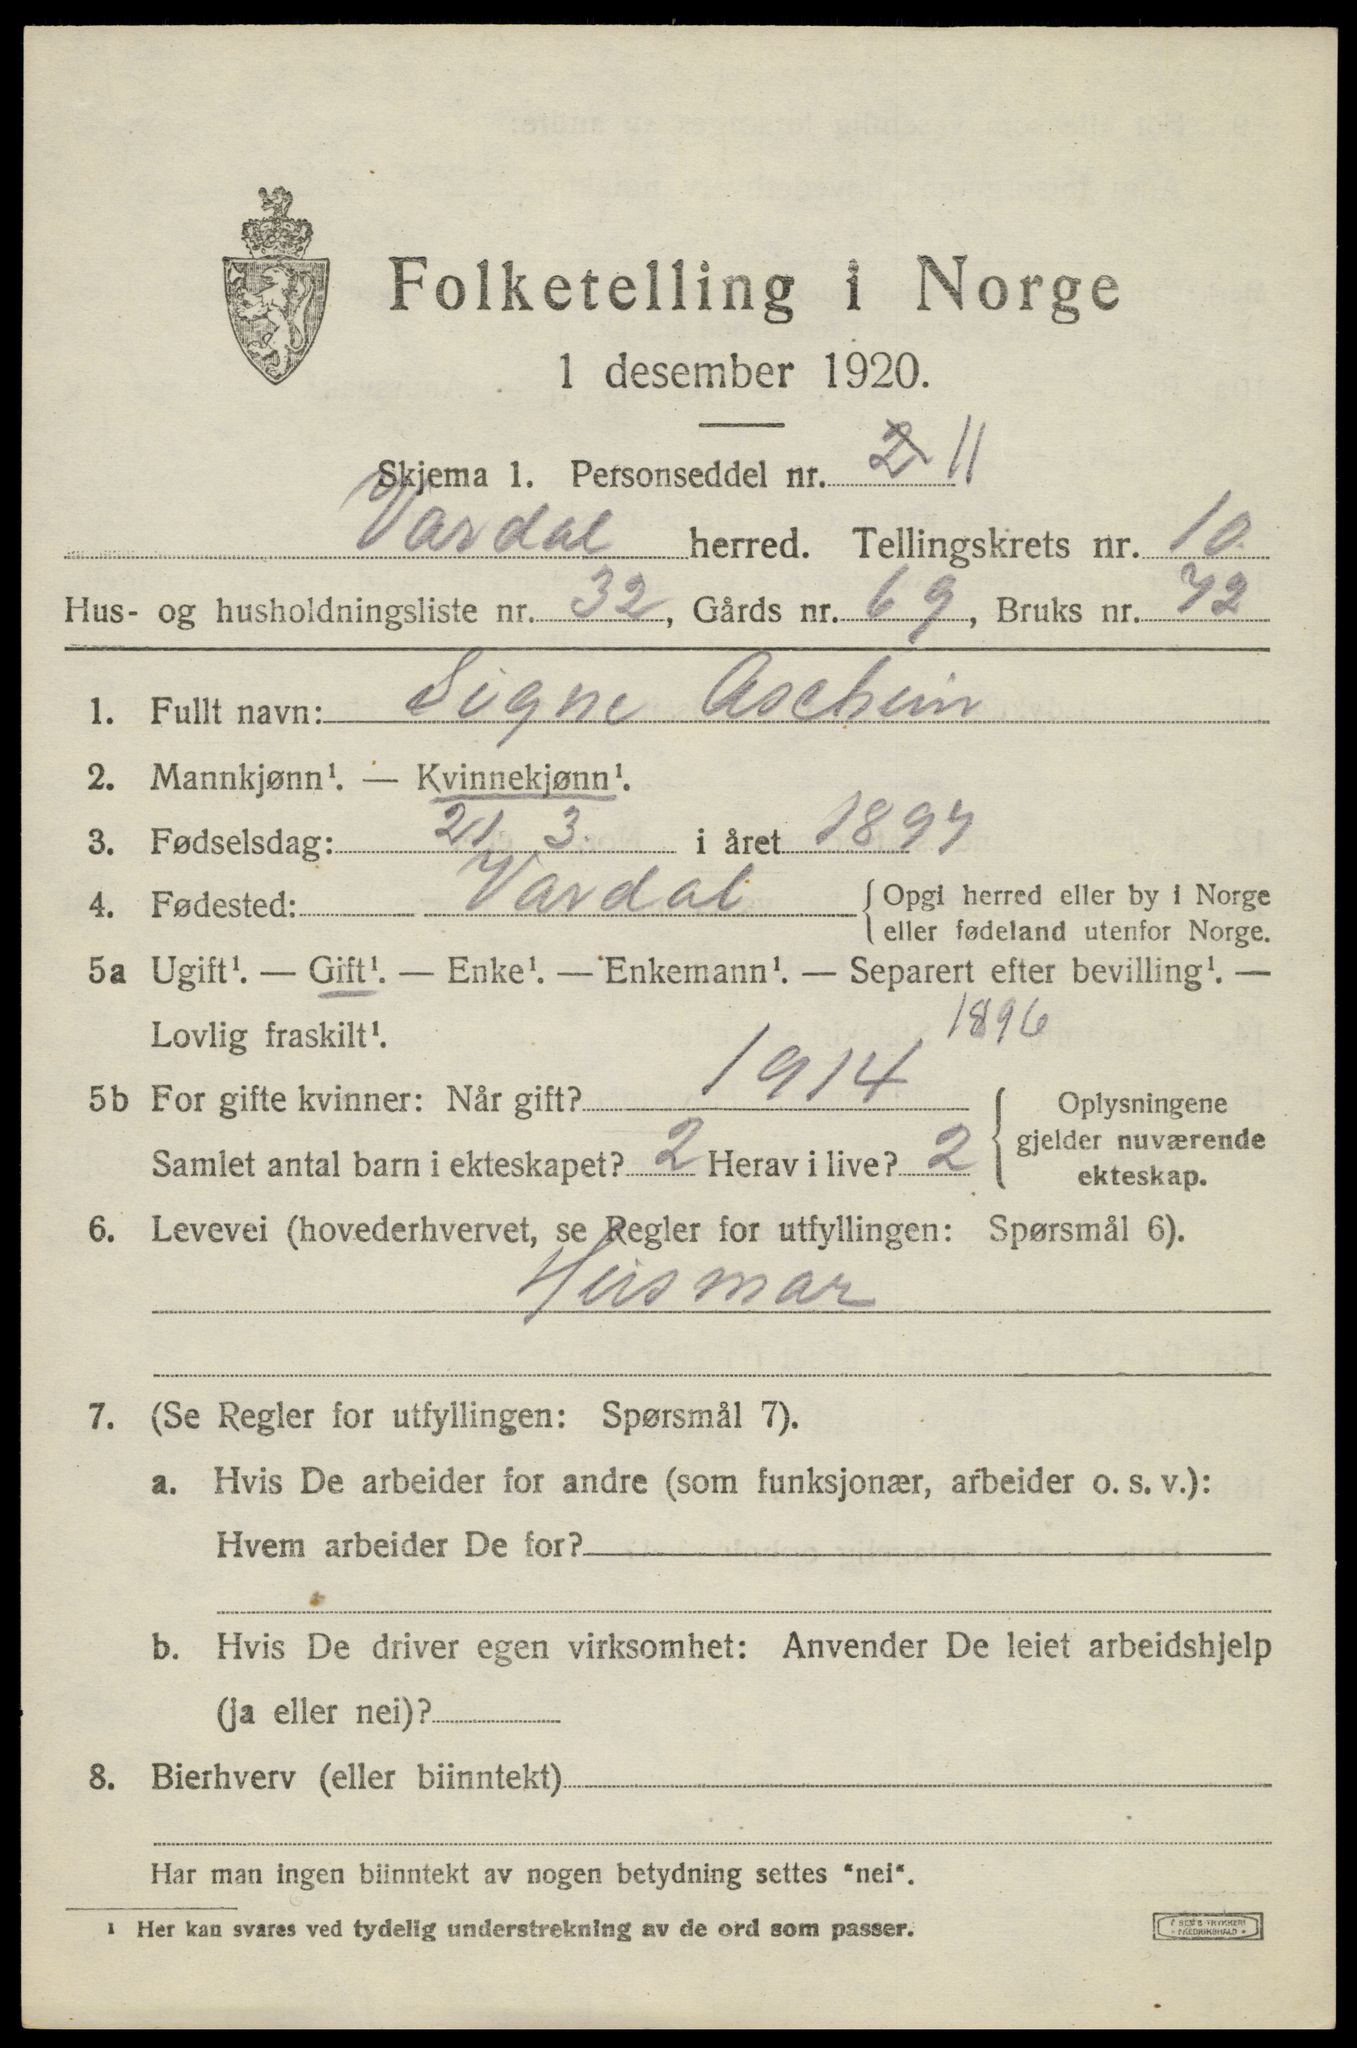 Folketelling i Norge
1 desember 1920.
Skjema 1. Personseddel nr. 2 11
Vardal herred. Tellingskrets nr. 10
Hus- og husholdningsliste nr. 32, Gårds nr. 69, Bruks nr. 72
1. Fullt navn: Signe Ascheim
2. Mannkjønn¹. — Kvinnekjønn¹.
3. Fødselsdag: 21 3. i året 1897
4. Fødested: Vardal { Opgi herred eller by i Norge
eller fødeland utenfor Norge.
5a Ugift¹. — Gift¹. — Enke¹. — Enkemann¹. — Separert efter bevilling¹. —
Lovlig fraskilt¹. 1896
5b For gifte kvinner: Når gift? 1914
Samlet antal barn i ekteskapet? 2 Herav i live? 2
{ Oplysningene
gjelder nuværende
ekteskap.
6. Levevei (hovederhvervet, se Regler for utfyllingen: Spørsmål 6).
Husmor
7. (Se Regler for utfyllingen: Spørsmål 7).
a. Hvis De arbeider for andre (som funksjonær, arbeider o. s. v.):
Hvem arbeider De for?
b. Hvis De driver egen virksomhet: Anvender De leiet arbeidshjelp
(ja eller nei)?
8. Bierhverv (eller biinntekt)
Har man ingen biinntekt av nogen betydning settes "nei".
¹ Her kan svares ved tydelig understrekning av de ord som passer.